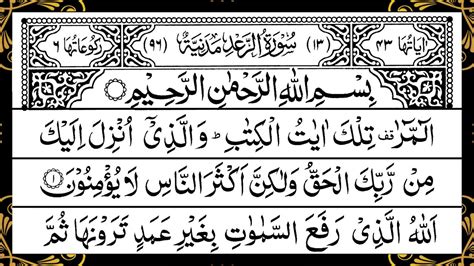 اٰیَاتُهَا ۴۳ (۱۳) سُوْرَةُ الرَّعْدِ مَدَنِيَّةٌ (۹۶) رُكُوْعَاتُهَا ۶
بِسْمِ اللّٰهِ الرَّحْمٰنِ الرَّحِيْمِ
الٓمّٓرٰ قف تِلْكَ اٰيٰتُ الْكِتٰبِ ؕ وَالَّذِيْۤ اُنْزِلَ اِلَيْكَ
مِنْ رَّبِّكَ الْحَقُّ وَلٰكِنَّ اَكْثَرَ النَّاسِ لَا يُؤْمِنُوْنَ ۱
اَللّٰهُ الَّذِيْ رَفَعَ السَّمٰوٰتِ بِغَيْرِ عَمَدٍ تَرَوْنَهَا ثُمَّ